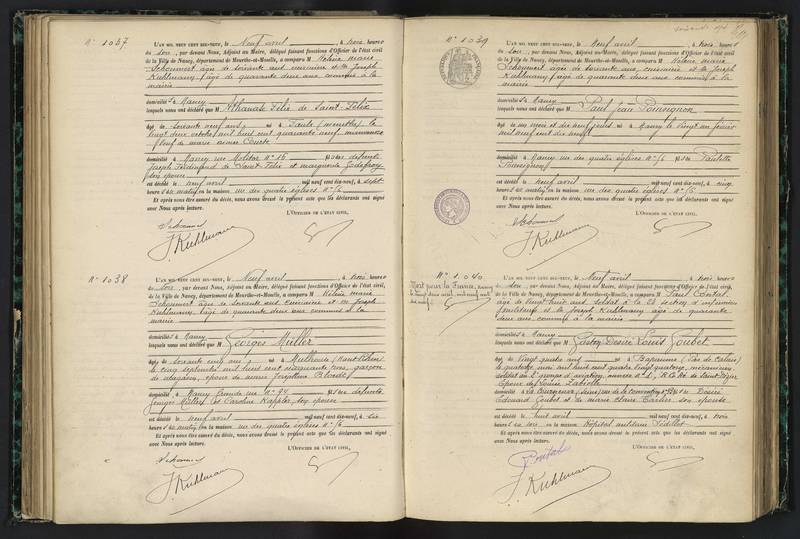 N° 1037
L'AN MIL NEUF CENT DIX-NEUF, le Neuf avril, à trois heures
du soir, par devant Nous, Adjoint au Maire, délégué faisant fonctions d'Officier de l'état civil,
de la Ville de Nancy, département de Meurthe-et-Moselle, a comparu M
Schonnert âgé de soixante ans, et M Joseph
Kuhlmann, âgé de quarante deux ans commis à la
mairie
domiciliés à Nancy
lesquels nous ont déclaré que M Athanase Félix de Saint Félix
âgé de soixante neuf ans, né à
vingt deux octobre mil huit cent quarante neuf
veuf de marie
domicilié à Nancy rue Molitor N° 16 fils des défunts
Joseph Ferdinand de Saint Félix et marguerite Godefroy
ses époux
est décédé le neuf avril mil neuf cent dix-neuf, à sept
heures du matin, en la maison rue des quatre églises N° 6
Et après nous être assuré du décès, nous avons dressé le présent acte que les déclarants ont signé
avec Nous après lecture.
L'OFFICIER DE L'ÉTAT CIVIL,
J. Kuhlmann
N° 1038
L'AN MIL NEUF CENT DIX-NEUF, le Neuf avril, à trois heures
du soir, par devant Nous, Adjoint au Maire, délégué faisant fonctions d'Officier de l'état civil,
de la Ville de Nancy, département de Meurthe-et-Moselle, a comparu M
Schonnert âgé de soixante ans, et M Joseph
Kuhlmann âgé de quarante deux ans commis à la
mairie
domiciliés à Nancy
lesquels nous ont déclaré que M Georges Müller
âgé de soixante cinq ans, né à Mulhouse (Haut Rhin)
le cinq septembre mil huit cent cinquante trois, garçon
de magasin, époux de marie Joséphine
domicilié à Nancy Grande rue N° 94 fils des défunts
Müller et Caroline Kappler, ses époux
est décédé le neuf avril mil neuf cent dix-neuf, à six
heures du matin, en la maison rue des quatre églises N° 6
Et après nous être assuré du décès, nous avons dressé le présent acte que les déclarants ont signé
avec Nous après lecture.
L'OFFICIER DE L'ÉTAT CIVIL,
J. Kuhlmann
N° 1039
L'AN MIL NEUF CENT DIX-NEUF, le Neuf avril, à trois heures
du soir, par devant Nous, Adjoint au Maire, délégué faisant fonctions d'Officier de l'état civil,
de la Ville de Nancy, département de Meurthe-et-Moselle, a comparu M
Schonnert âgé de soixante ans, et M Joseph
Kuhlmann, âgé de quarante deux ans commis à la
mairie
domiciliés à Nancy
lesquels nous ont déclaré que M Paul Jean Poussignon
âgé de un mois et dix neuf jours né à Nancy le vingt un février
mil neuf cent dix neuf
domicilié à Nancy rue des quatre églises N° 6 fils de Paulette
Poussignon
est décédé le neuf avril mil neuf cent dix-neuf, à cinq
heures du matin, en la maison rue des quatre églises N° 6
Et après nous être assuré du décès, nous avons dressé le présent acte que les déclarants ont signé
avec Nous après lecture.
L'OFFICIER DE L'ÉTAT CIVIL,
J. Kuhlmann
N° 1040
Mort pour la France
L'AN MIL NEUF CENT DIX-NEUF, le Neuf avril, à trois heures
du soir, par devant Nous, Adjoint au Maire, délégué faisant fonctions d'Officier de l'état civil,
de la Ville de Nancy, département de Meurthe-et-Moselle, a comparu M Paul Contal
âgé de vingt huit ans soldat à la 23 section d'infirmiers
et M Joseph Kuhlmann âgé de quarante
deux ans, commis à la mairie
domiciliés à Nancy
lesquels nous ont déclaré que M Gaston Désiré Louis Goubet
âgé de Vingt quatre ans né à Bapaume (Pas de Calais)
le quatorze mai mil huit cent quatre vingt quatorze, mécanicien
soldat au 2 groupe d'aviation,
époux de Louise
domicilié à fils de Désiré
Edouard Goubet et de marie Claire son épouse
est décédé le huit avril mil neuf cent dix-neuf, à trois
heures du soir en la maison Hôpital militaire Sédillot
Et après nous être assuré du décès, nous avons dressé le présent acte que les déclarants ont signé
avec Nous après lecture.
L'OFFICIER DE L'ÉTAT CIVIL,
J. Kuhlmann